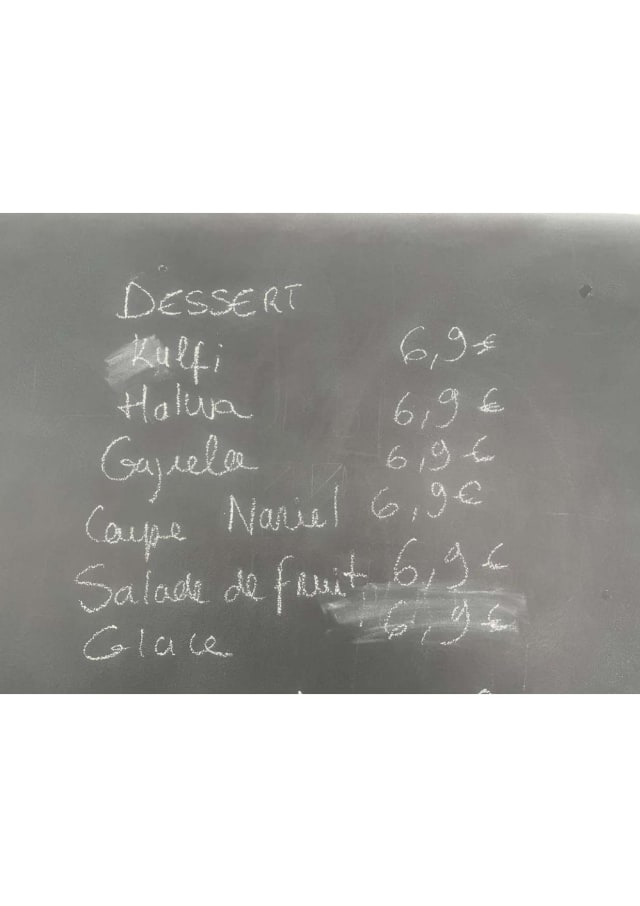 DESSERT
Kulfi 6,9€
Halwa 6,9€
Gajrela 6,9€
Coupe Nariel 6,9€
Salade de fruit 6,9€
Glace 6,9€